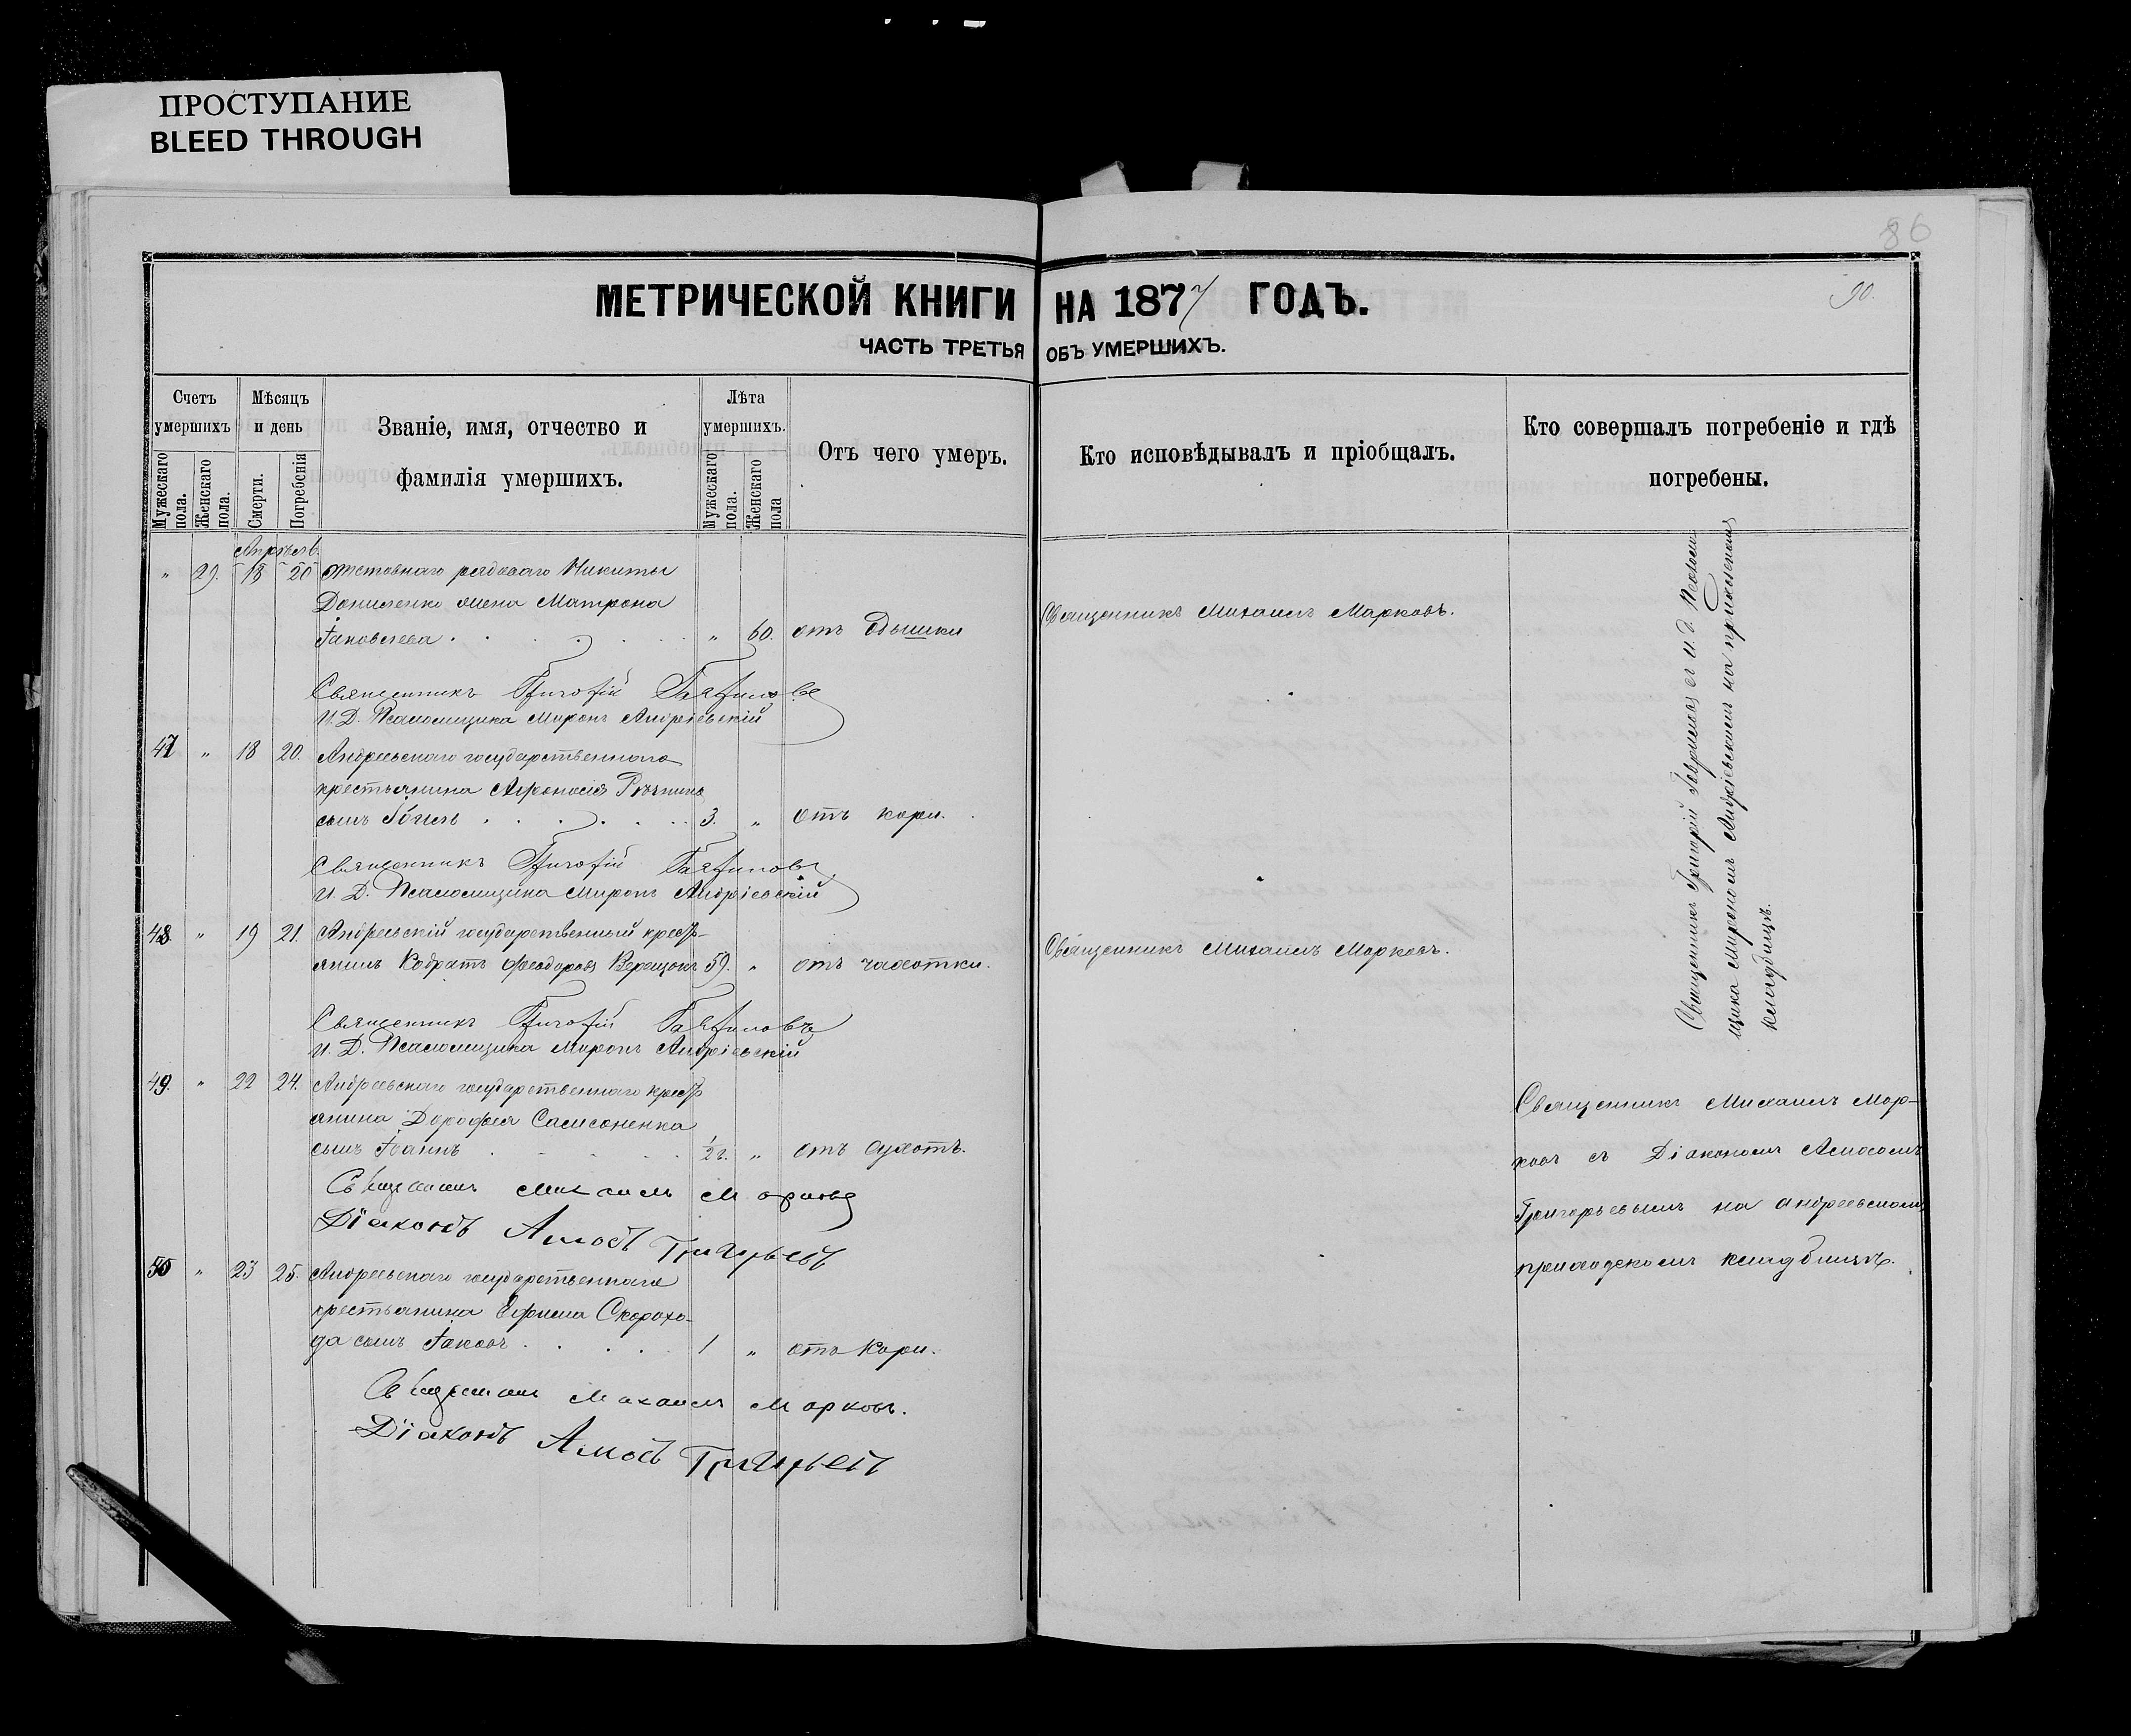 ПРОСТУПАНИЕ
BLEED THROUGH
86
90.
МЕТРИЧЕСКОЙ КНИГИ НА 1877 ГОДЪ.
ЧАСТЬ ТРЕТЬЯ ОБЪ УМЕРШИХЪ.
Счетъ умершихъ
Мужескаго пола.
Женскаго пола.
Мѣсяцъ и день
Смерти.
Погребенія
Званіе, имя, отчество и
фамилія умершихъ.
Лѣта умершихъ.
Мужескаго пола.
Женскаго пола
Отъ чего умеръ.
Кто исповѣдывалъ и пріобщалъ.
Кто совершалъ погребеніе и гдѣ
погребены.
Апрѣль.
" 29. 18 20 отставнаго рядоваго Никиты
Даниленко жена Матрона
Іаковлева . . . . . " 60. отъ одышки
Священникъ Михаилъ Марковъ.
Священникъ Григорій
И. Д. Псаломщика Миронъ Андріевскій
47 " 18 20. Андреевскаго государственнаго
крестьянина Афонасія
сынъ . . . . . 3. " отъ кори.
Священникъ Григорій
И. Д. Псаломщика Миронъ Андріевскій
48. " 19 21. Андреевскій государственный кресть-
янинъ Кодратъ Феодоровъ 59. " отъ чахотки.
Священникъ Михаилъ Марковъ.
Священникъ Григорій
И. Д. Псаломщика Миронъ Андріевскій
Священникъ Григорій съ И. Д. Псалом-
щика Мирономъ Андріевскимъ на приходскомъ
кладбищѣ.
49. " 22 24. Андреевскаго государственнаго кресть
янина Дорофея Самсоненка
сынъ Іоаннъ . . . . . 1/2 г. " отъ сухотъ.
Священникъ Михаилъ Марковъ
Діаконъ Амосъ Григорьевъ
Священникъ Михаилъ Мар-
ковъ съ Діакономъ Амосомъ
Григорьевымъ на андреевскомъ
приходскомъ кладбищѣ.
50 " 23 25. Андреевскаго государственнаго
крестьянина Ефима Скорохо-
да сынъ Іаковъ . . . . . 1 " отъ Кори.
Священникъ Михаилъ Марковъ.
Діаконъ Амосъ Григорьевъ